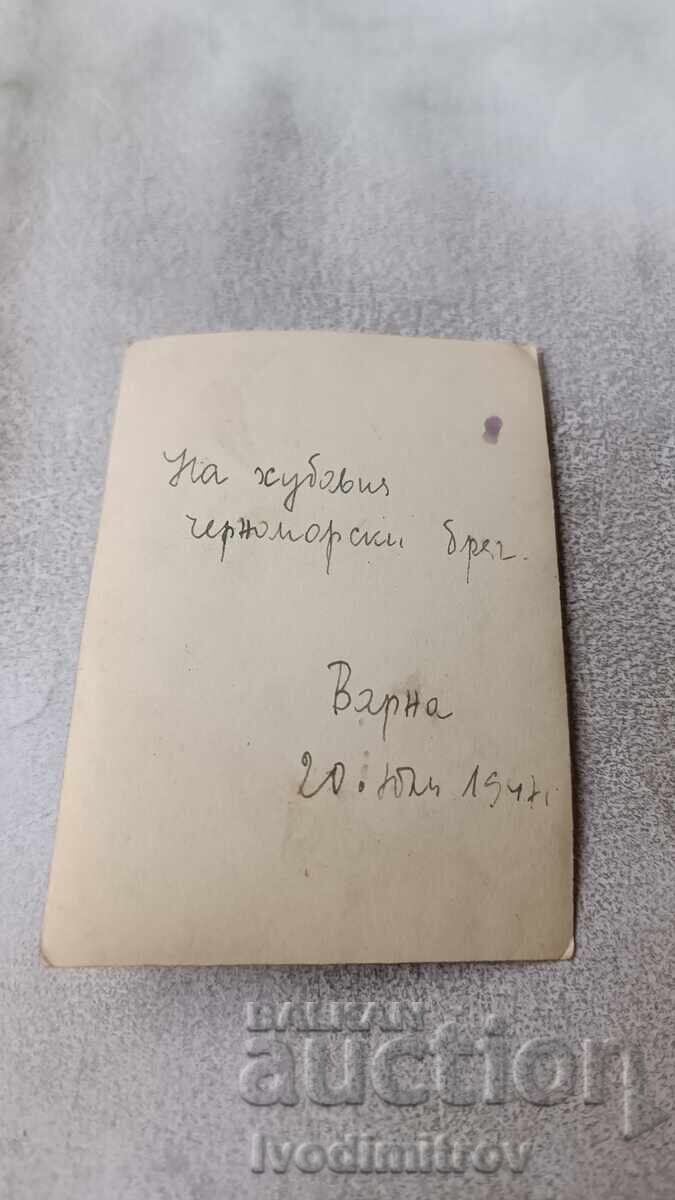 На хубавия
черноморски бряг.
Варна
20. Юли 1947.
BALKAN
auction
Ivodimitrov